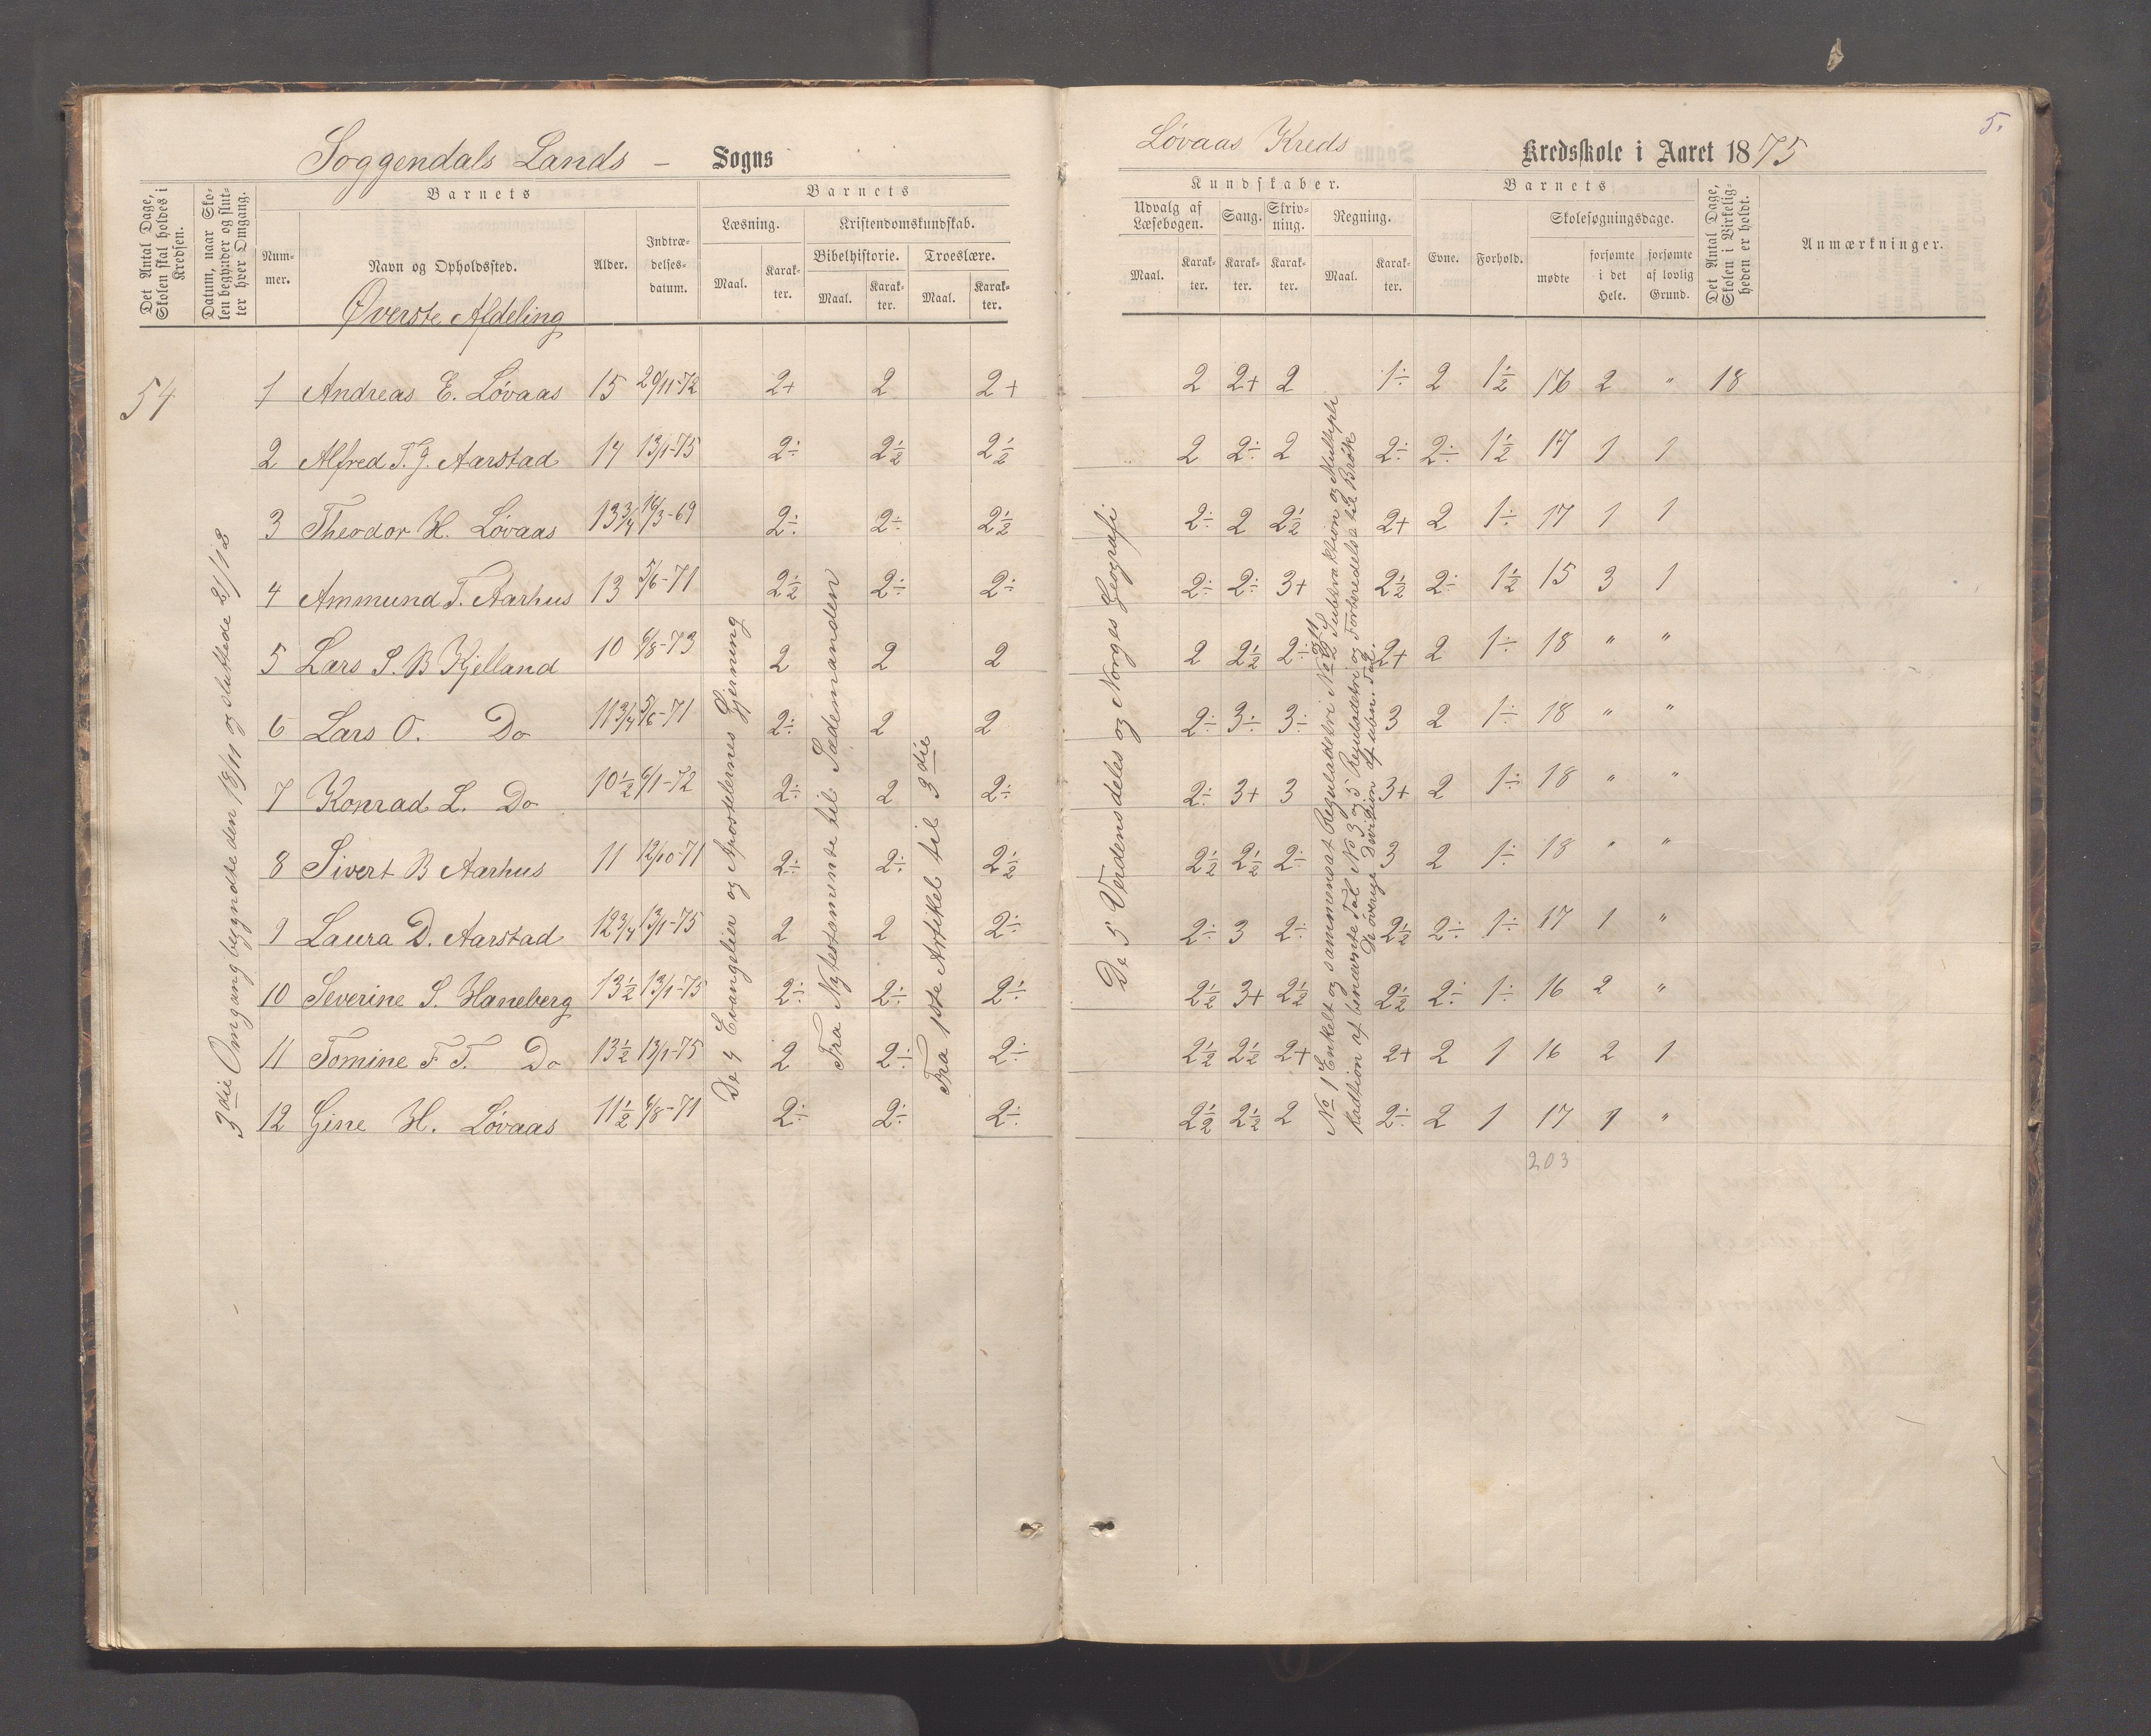 Soggendals Lands – Sogns
Det Antal Dage, Skolen skal holdes i Kredsen.
Datum, naar Skolen begynder og slutter hver Omgang.
Barnets
Nummer.
Navn og Opholdssted.
Øverste Afdeling
Alder.
Indtrædelses-datum.
Barnets
Læsning.
Maal.
Karakter.
Kristendomskundskab.
Bibelhistorie.
Maal.
Karakter.
Troeslære.
Maal.
Karakter.
54
3die Omgang begyndte den 18/11 og sluttede 21/12
1 Andreas E. Løvaas 15 29/11-72 2+ 2 2+
2 Alfred T. G. Aarstad 14 13/1-75 2÷ 2½ 2½
3 Theodor H. Løvaas 13¾ 16/3-69 2÷ 2÷ 2½
4 Ammund T. Aarhus 13 5/6-71 2½ 2÷ 2÷
5 Lars S. B Kjelland 10 6/8-73 2 2 2
6 Lars O. Do 11¾ 5/6-71 2÷ 2 2
7 Konrad L. Do 10½ 6/1-72 2÷ 2 2÷
8 Sivert B Aarhus 11 12/10-71 2÷ 2÷ 2½
9 Laura D. Aarstad 12¾ 13/1-75 2 2 2÷
10 Severine S. Haneberg 13½ 13/1-75 2÷ 2÷ 2÷
11 Tomine F T. Do 13½ 13/1-75 2 2÷ 2÷
12 Gine H. Løvaas 11½ 6/8-71 2÷ 2÷ 2÷
De 4 Evangelier og Apostelernes Gjerning
Fra Nytestamente til Sædemanden
Fra 1ste Artikel til 3die
5.
Løvaas Kreds
Kredsskole i Aaret 1875
Kundskaber.
Udvalg af Læsebogen.
Maal.
Karakter.
Sang.
Karakter.
Skrivning.
Karakter.
Regning.
Maal.
Karakter.
Barnets
Evne.
Forhold.
Skolesøgningsdage.
mødte
forsømte i det Hele.
forsømte af lovlig Grund.
Det Antal Dage, Skolen i Virkeligheden er holdt.
Anmærkninger.
2 2+ 2 1÷ 2 1½ 16 2 " 18
2 2÷ 2 2÷ 2÷ 1½ 17 1 1
2÷ 2 2½ 2+ 2 1÷ 17 1 1
2÷ 2÷ 3+ 2½ 2÷ 1½ 15 3 1
2 2½ 2÷ 2+ 2 1÷ 18 " "
2÷ 3÷ 3÷ 3 2 1÷ 18 " "
2÷ 3+ 3 3+ 2 1÷ 18 " "
2½ 2½ 2÷ 3 2 1÷ 18 " "
2÷ 3 2÷ 2½ 2÷ 1÷ 17 1 "
2½ 3+ 2½ 2½ 2÷ 1÷ 16 2 "
2½ 2½ 2+ 2+ 2 1 16 2 1
2½ 2½ 2 2÷ 2 1 17 1 "
203
De 5 Verdensdele og Norges Geografi
No 1 Enkelt og sammensat Reguladetri No 2 Subtraktion og Multipli
kadtion af benævnte Tal No 3 og 5 Reguladetri og Forberedelse til Brøk
De øvrige Division af ubn. Tal.